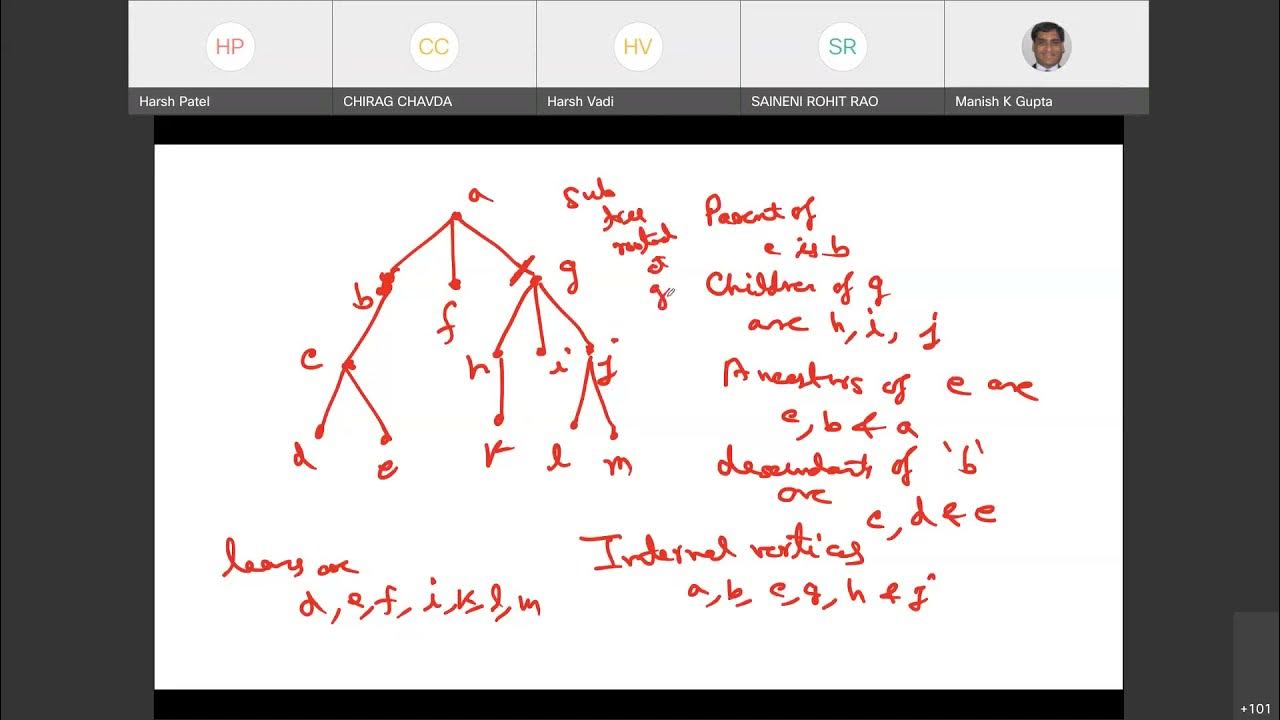 HP
CC
HV
SR
Harsh Patel
CHIRAG CHAVDA
Harsh Vadi
SAINENI ROHIT RAO
Manish K Gupta
a
b
f
g
c
h
i
j
d
e
k
l
m
Sub
tree
rooted
at
g
Parent of
c is b
Children of g
are h, i, j
Ancestors of e are
c, b & a
descendants of 'b'
are
c, d & e
Internal vertices
a, b, c, g, h & j
leaves are
d, e, f, i, k, l, m
+101